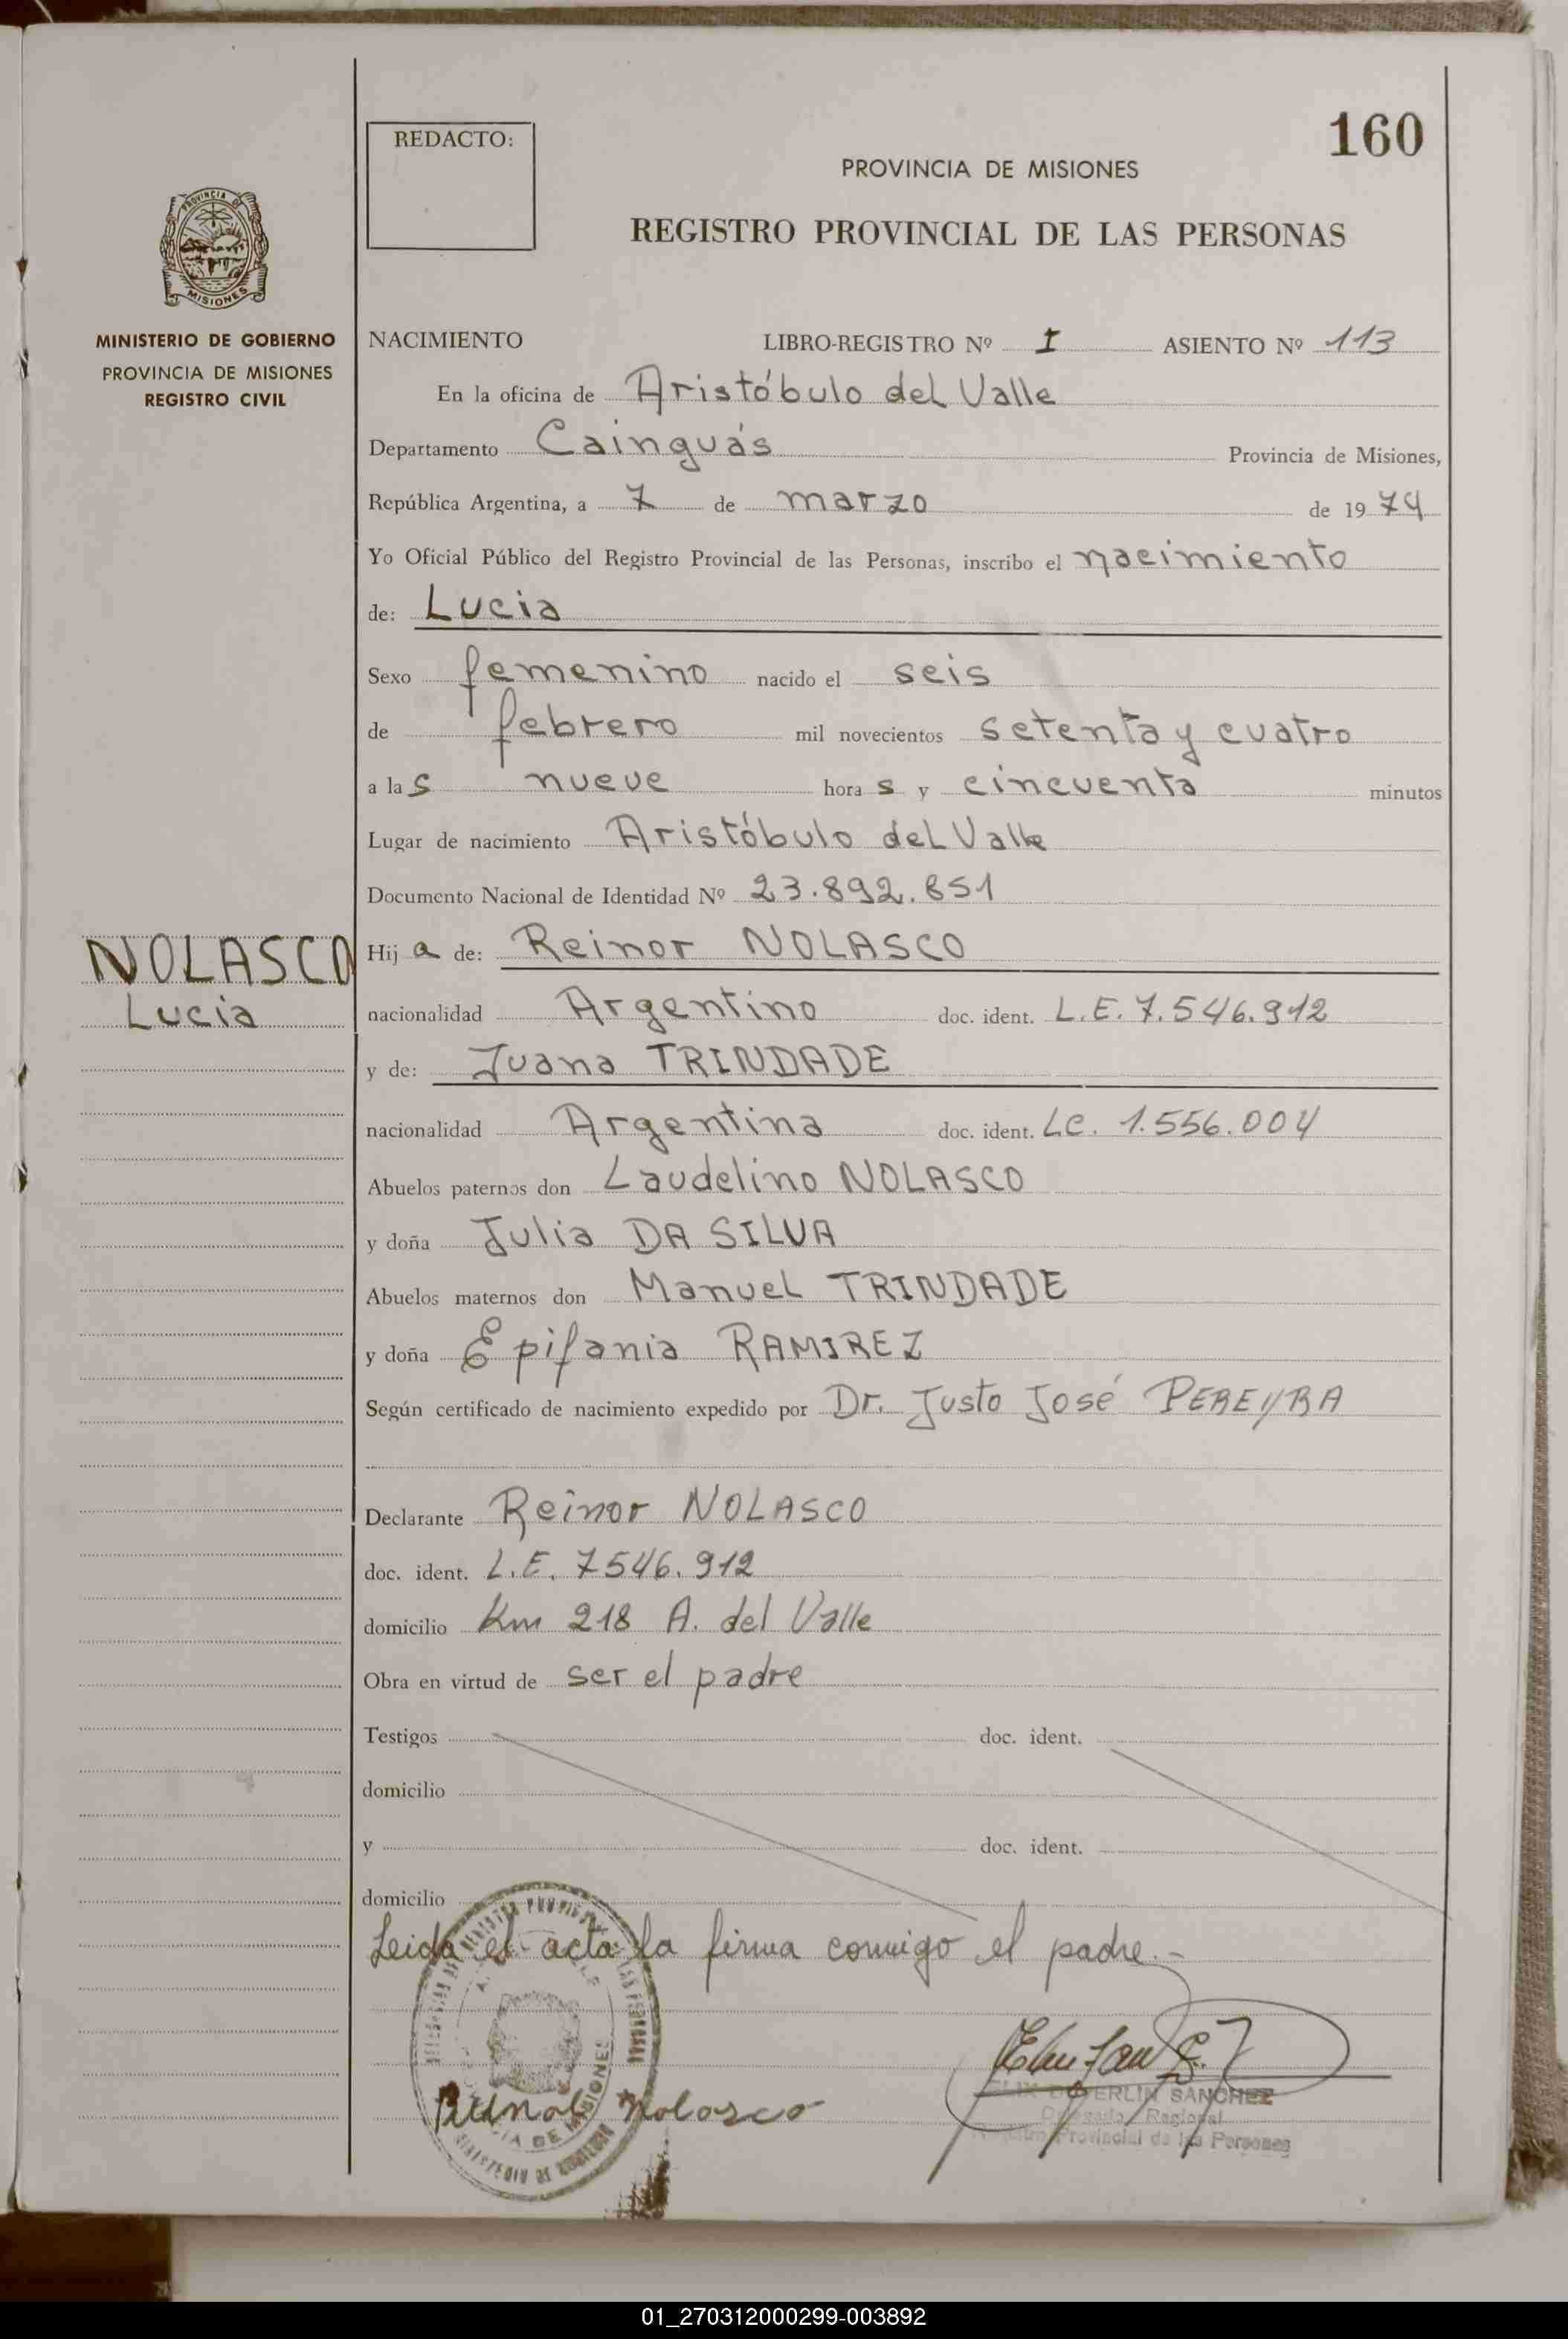 REDACTO:
160
PROVINCIA DE MISIONES
REGISTRO PROVINCIAL DE LAS PERSONAS
PROVINCIA DE
MISIONES
MINISTERIO DE GOBIERNO
PROVINCIA DE MISIONES
REGISTRO CIVIL
NACIMIENTO LIBRO-REGISTRO Nº I ASIENTO Nº 113
En la oficina de Aristóbulo del Valle
Departamento Cainguás Provincia de Misiones,
República Argentina, a 7 de marzo de 1974
Yo Oficial Público del Registro Provincial de las Personas, inscribo el nacimiento
de: Lucia
Sexo femenino nacido el seis
de febrero mil novecientos setenta y cuatro
a las nueve horas y cincuenta minutos
Lugar de nacimiento Aristóbulo del Valle
Documento Nacional de Identidad Nº 23.892.851
NOLASCO
Lucia
Hija de: Reinor NOLASCO
nacionalidad Argentino doc. ident. L.E. 7.546.912
y de: Juana TRINDADE
nacionalidad Argentina doc. ident. LC. 1.556.004
Abuelos paternos don Laudelino NOLASCO
y doña Julia DA SILVA
Abuelos maternos don Manuel TRINDADE
y doña Epifania RAMIREZ
Según certificado de nacimiento expedido por Dr. Justo José PEREYRA
Declarante Reinor NOLASCO
doc. ident. L.E. 7546.912
domicilio Km 218 A. del Valle
Obra en virtud de ser el padre
Testigos doc. ident.
domicilio
y doc. ident.
domicilio
Leida el acta la firma conmigo el padre.-
Nolasco
SANCHEZ
Delegado Regional
Provincial de las Personas
01_270312000299-003892